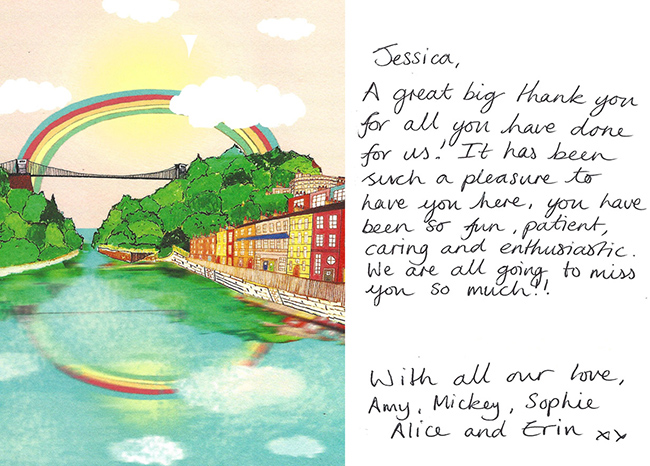 Jessica,
A great big thank you
for all you have done
for us! It has been
such a pleasure to
have you here, you have
been so fun, patient,
caring and enthusiastic.
We are all going to miss
you so much!!
With all our love,
Amy, Mickey, Sophie
Alice and Erin xx